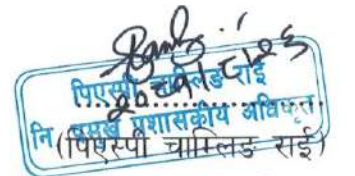 पिएस्पी चाम्लिङ राई
नि प्रमुख प्रशासकीय अधिकृत
(पिएस्पी चाम्लिङ राई)